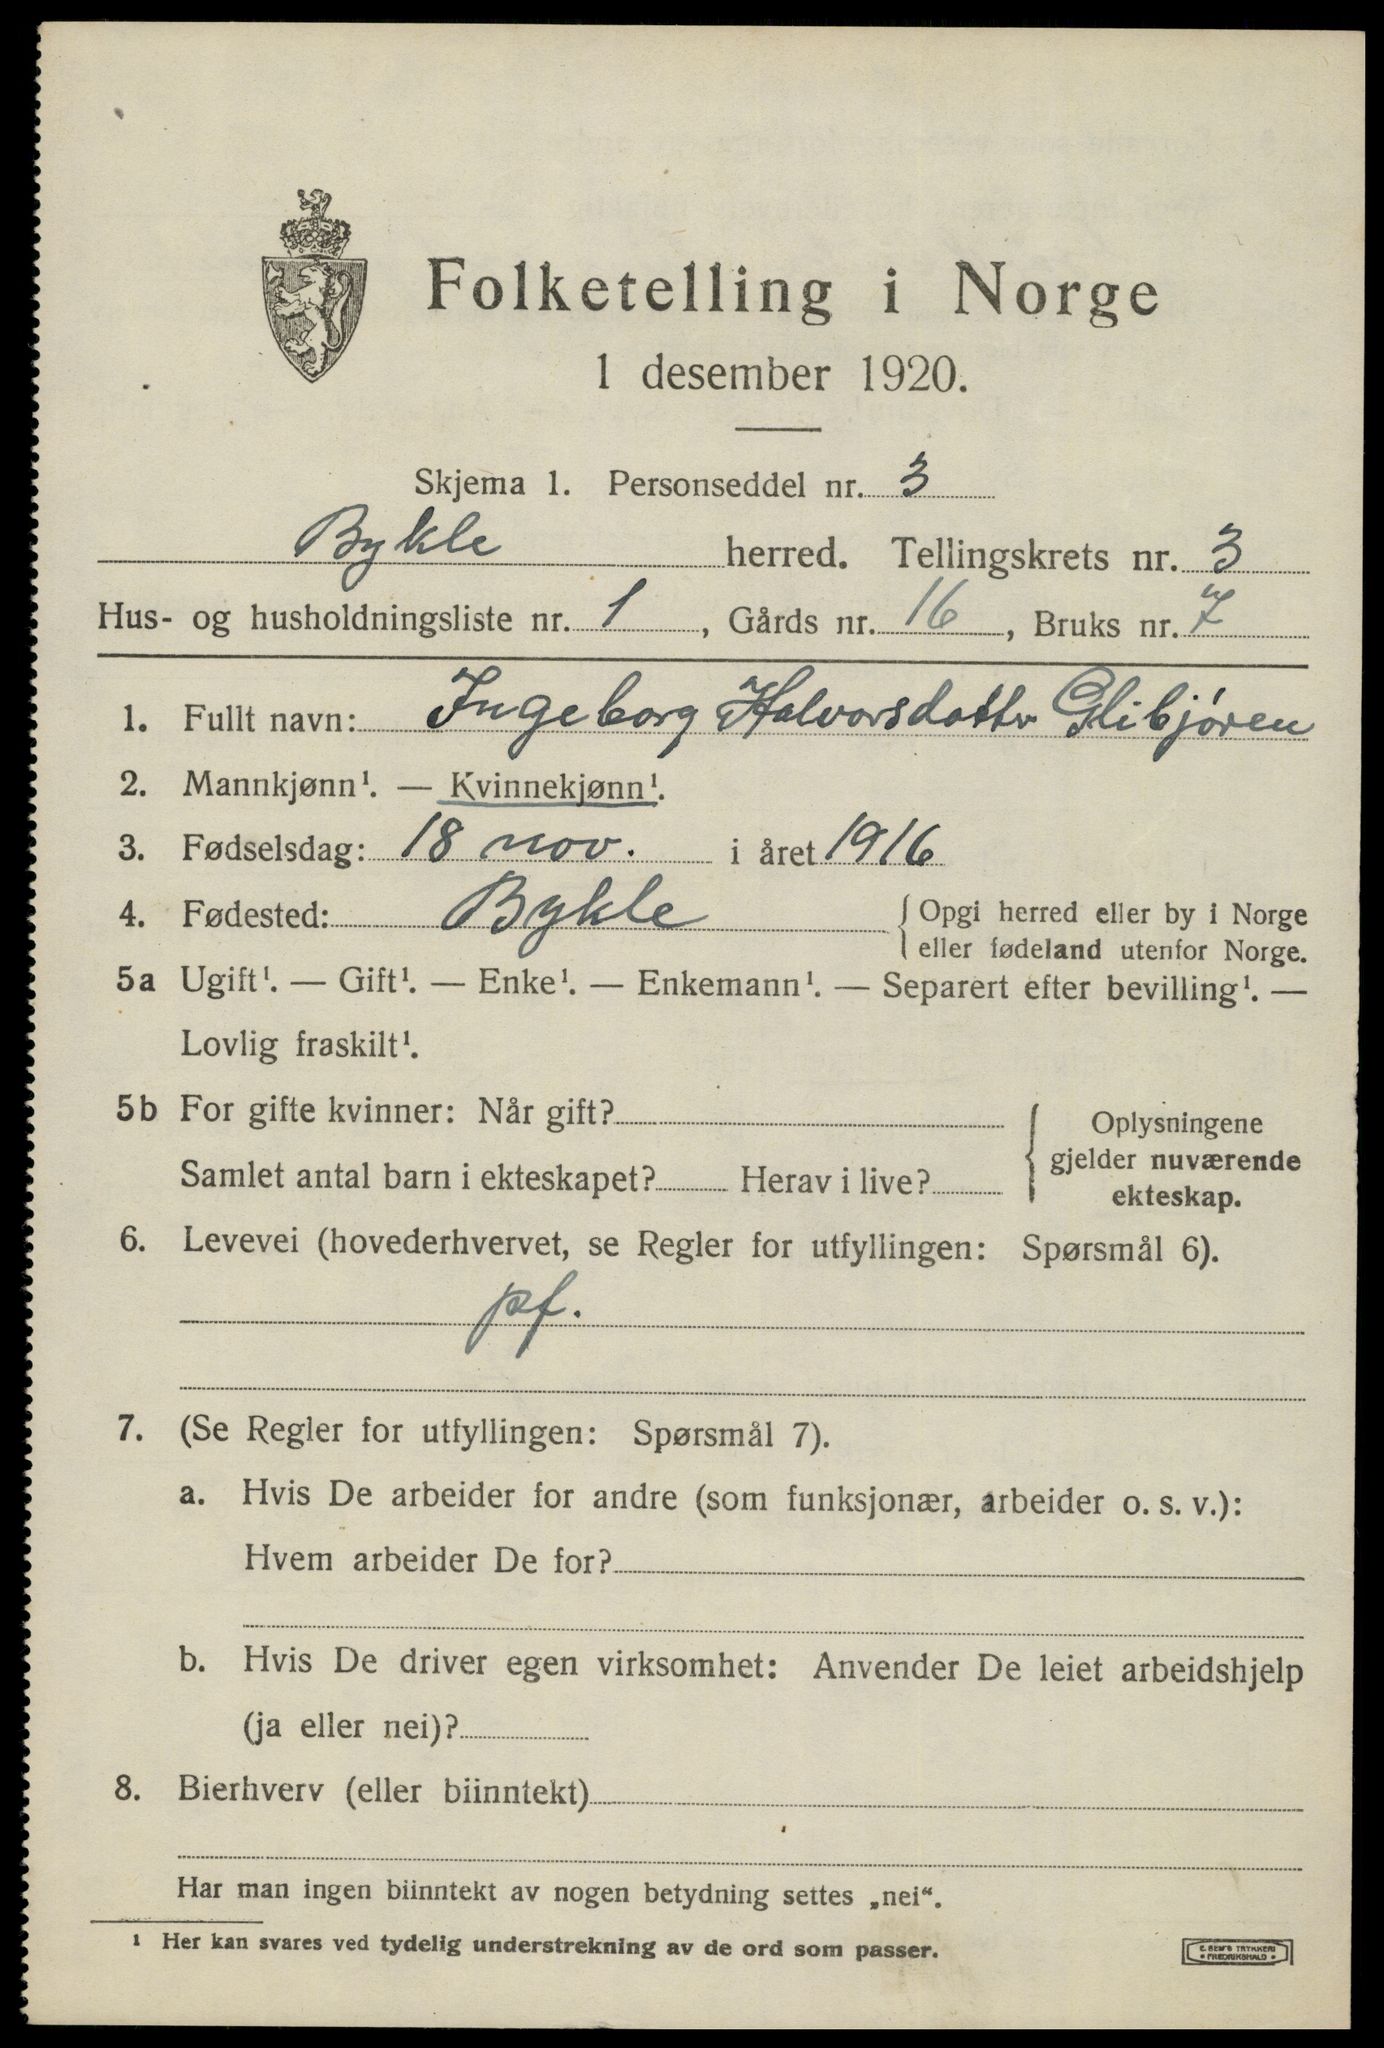 Folketelling i Norge
1 desember 1920.
Skjema 1. Personseddel nr. 3
Bykle herred. Tellingskrets nr. 3
Hus- og husholdningsliste nr. 1, Gårds nr. 16, Bruks nr. 7
1. Fullt navn: Ingeborg Halvorsdatter Glibjören
2. Mannkjønn¹. — Kvinnekjønn¹.
3. Fødselsdag: 18 nov. i året 1916
4. Fødested: Bykle {Opgi herred eller by i Norge
eller fødeland utenfor Norge.
5a Ugift¹. — Gift¹. — Enke¹. — Enkemann¹. — Separert efter bevilling¹. —
Lovlig fraskilt¹.
5b For gifte kvinner: Når gift?
Samlet antal barn i ekteskapet? Herav i live?
Oplysningene
gjelder nuværende
ekteskap.
6. Levevei (hovederhvervet, se Regler for utfyllingen: Spørsmål 6).
pf.
7. (Se Regler for utfyllingen: Spørsmål 7).
a. Hvis De arbeider for andre (som funksjonær, arbeider o. s. v.):
Hvem arbeider De for?
b. Hvis De driver egen virksomhet: Anvender De leiet arbeidshjelp
(ja eller nei)?
8. Bierhverv (eller biinntekt)
Har man ingen biinntekt av nogen betydning settes „nei“.
¹ Her kan svares ved tydelig understrekning av de ord som passer.
E. SEM'S TRYKKERI
• FREDRIKSHALD •